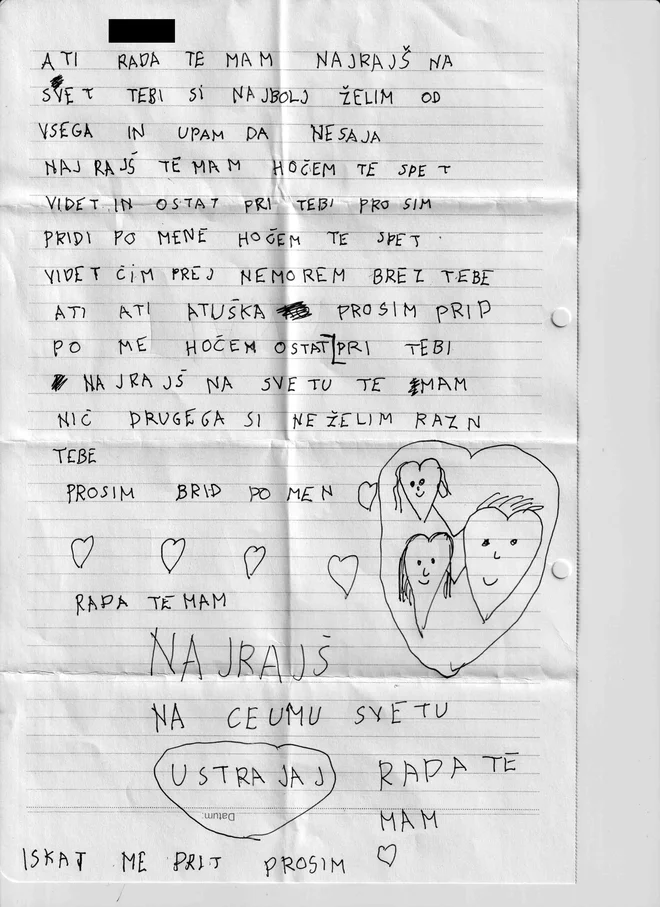 ATI RADA TE MAM NAJRAJŠ NA
SVET TEBI SI NAJBOLJ ŽELIM OD
VSEGA IN UPAM DA NESAJA
NAJ RAJŠ TE MAM HOČEM TE SPET
VIDET IN OSTAT PRI TEBI PROSIM
PRIDI PO MENE HOČEM TE SPET
VIDET ČIM PREJ NEMOREM BREZ TEBE
ATI ATI ATUŠKA PROSIM PRID
PO ME HOČEM OSTAT PRI TEBI
NAJRAJŠ NA SVETU TE MAM
NIČ DRUGEGA SI NE ŽELIM RAZN
TEBE
PROSIM BRID PO MEN
RADA TE MAM
NAJRAJŠ
NA CEUMU SVETU
USTRAJAJ
RADA TE
MAM
Datum:
ISKAT ME PRIT PROSIM